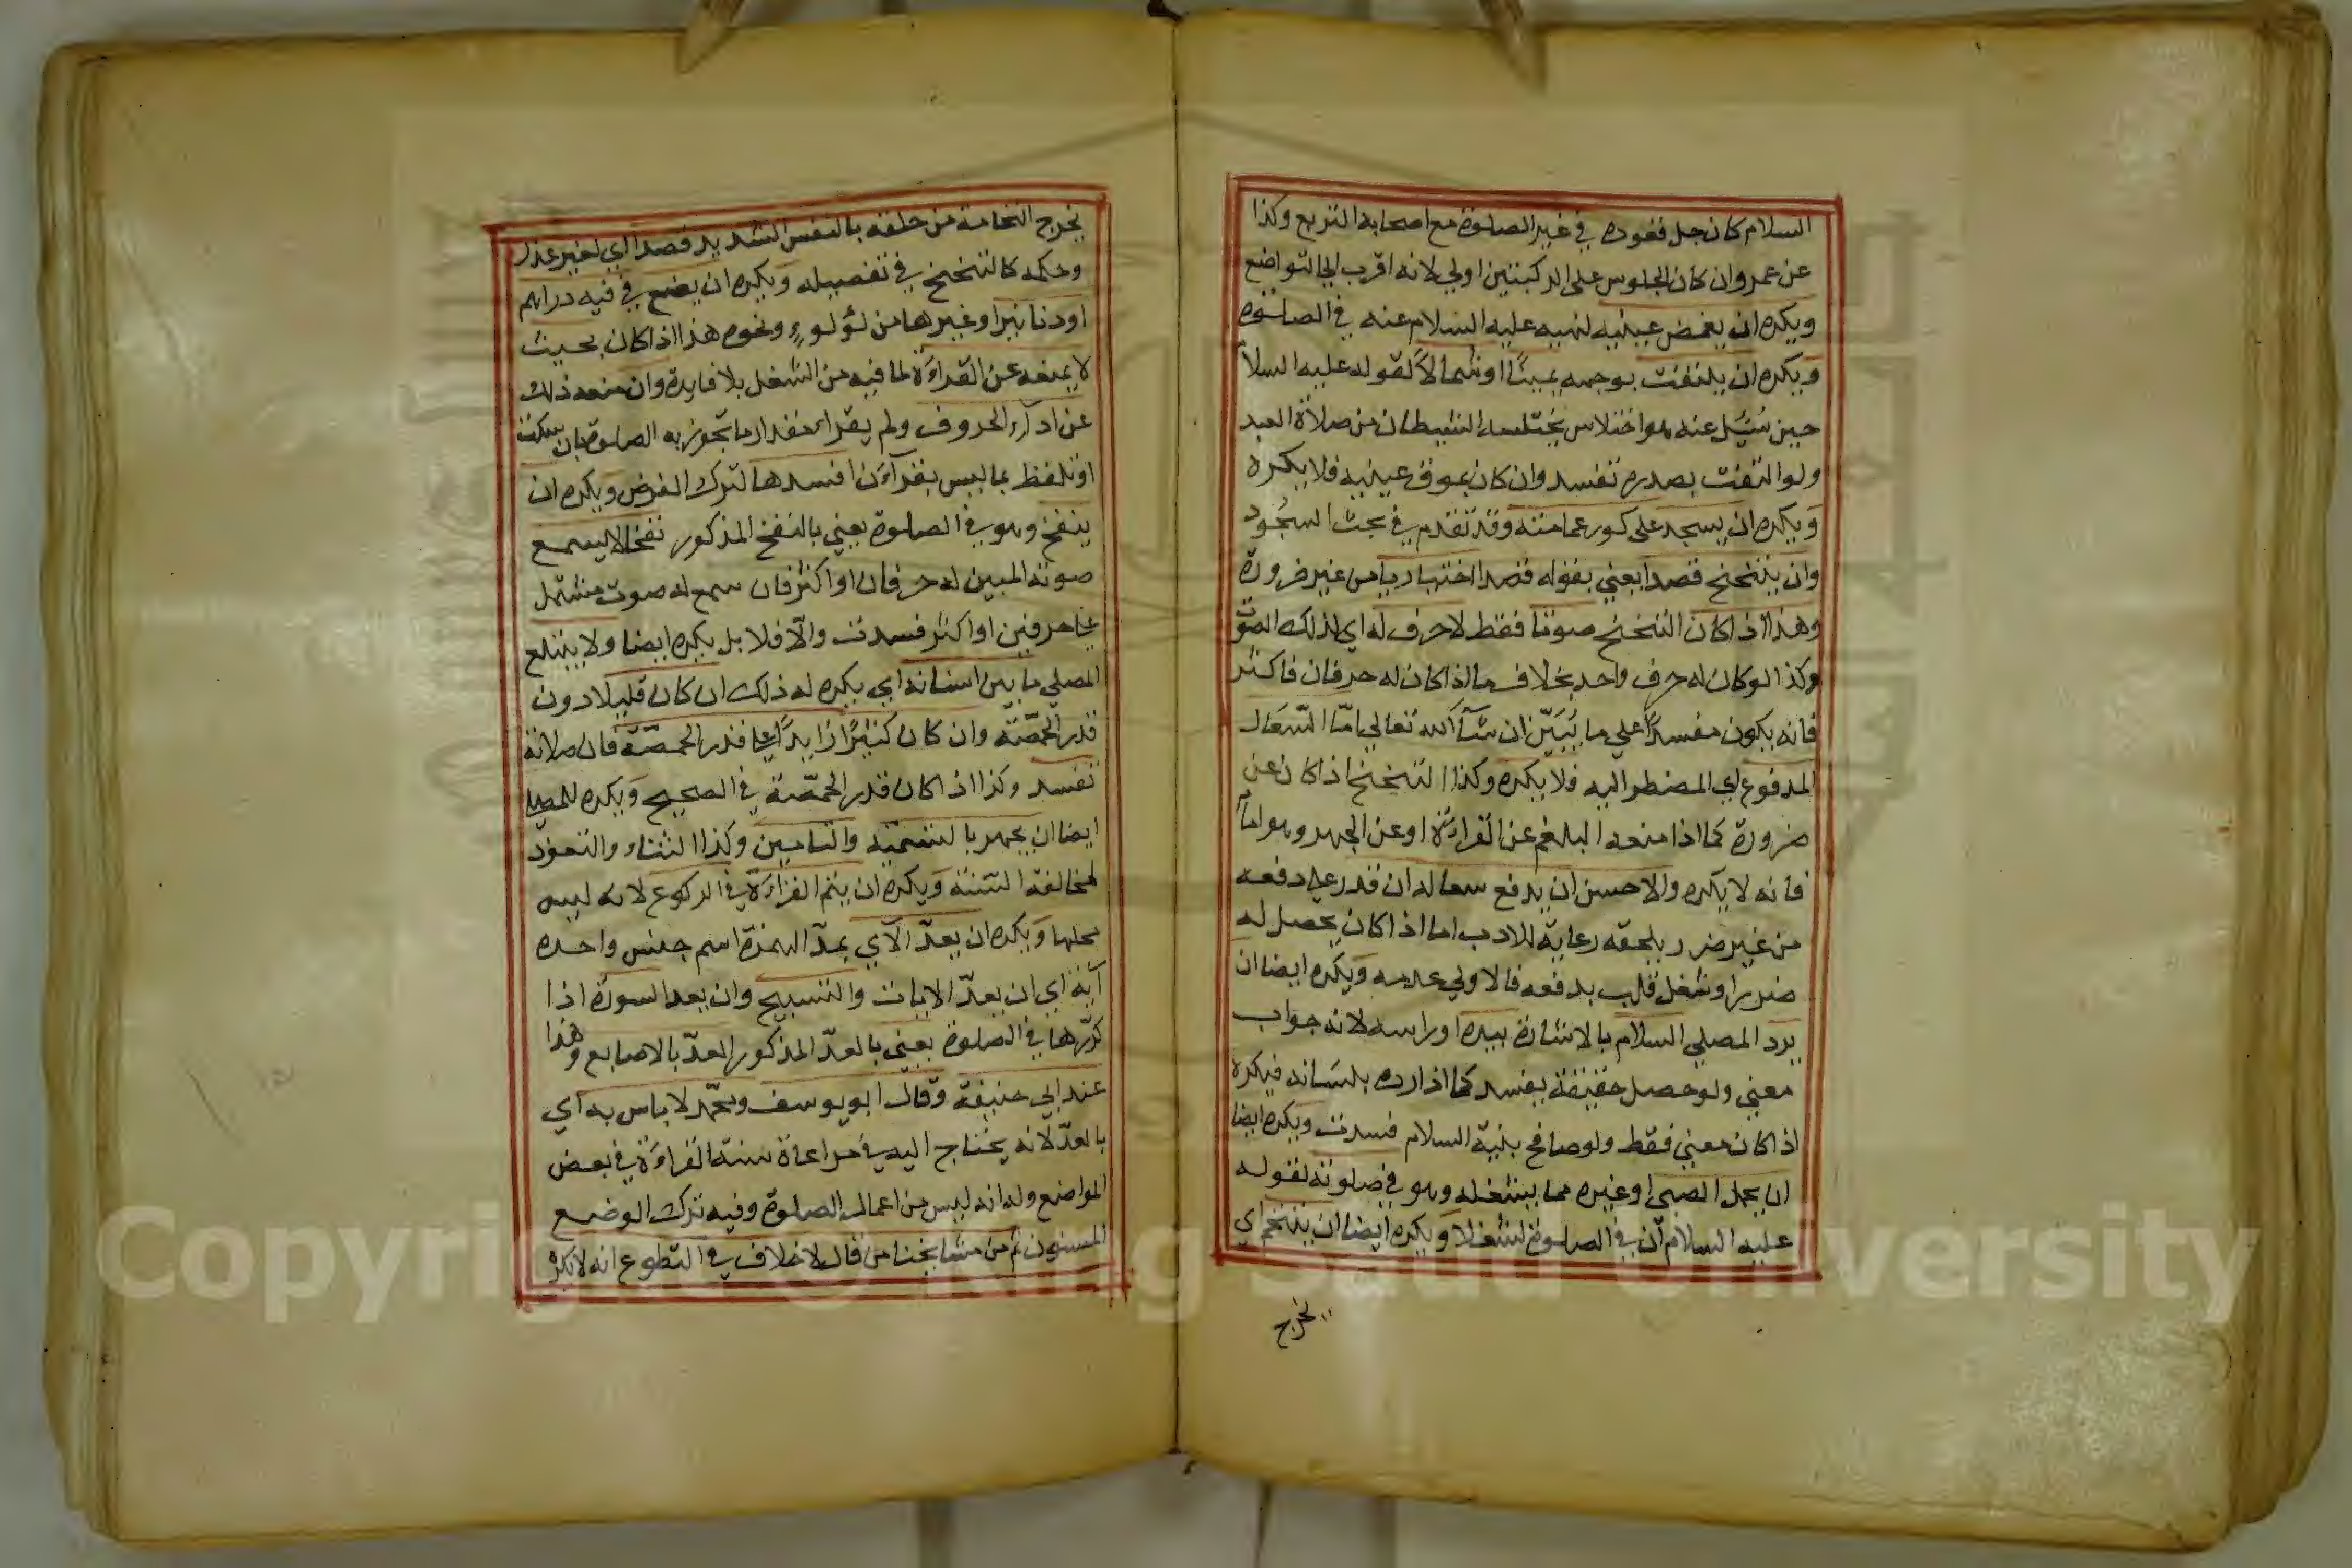 السلام كان جل قعوده في غير الصلوة مع اصحابه التربع وكذا
عن عمر وان كان الجلوس على الركبتين اولي لانه اقرب الي التواضع
ويكره ان يغمض عينيه لنهيه عليه السلام عنه في الصلوة
ويكره ان يلتفت بوجهه يمينًا او شمالاً لقوله عليه السلا
حين سُئِل عنه هو اختلاس يختلسه الشيطان من صلاة العبد
ولو التفت بصدره تفسد وان كان بموق عينيه فلا يكره
ويكره ان يسجد على كور عمامته وقد تقدم في بحث السجود
وان يتنحنح قصدا يعني بقوله قصدا اختياريا من غير ضرورة
وهذا اذا كان التنحنح صوتا فقط لا حرف له اي لذلك الصوت
وكذا لو كان له حرف واحد بخلاف ما اذا كان له حرفان فاكثر
فانه يكون مفسدًا علي ما يُبَيّن ان شآء الله تعالي امّا السّعال
المدفوع اي المضطر اليه فلا يكره وكذا التنحنح اذا كان عن
ضرورة كما اذا منعه البلغم عن القراءة او عن الجهر وهو امامٌ
فانه لا يكره والاحسن ان يدفع سعاله ان قدر علي دفعه
من غير ضرر يلحقه رعاية للادب اما اذا كان يحصل له
ضررا وشغل قلب بدفعه فالاولي عدمه ويكره ايضا ان
يرد المصلي السلام بالاشارة بيده او راسه لانه جواب
معني ولو حصل حقيقة يفسد كما اذا رده بلسانه فيكره
اذا كان معني فقط ولو صافح بنية السلام فسدت ويكره ايضا
ان يحمل الصبي او غيره مما يشغله وهو في صلوته لقوله
عليه السلام ان في الصلوة لشغلا ويكره ايضا ان يتنخم اي
يخرج
يخرج النخامة من حلقه بالنفس الشديد قصدا اي لغير عذر
وحكمه كالتنحنح في تفصيله ويكره ان يضع في فيه دراهم
او دنانيرا وغيرها من لؤلوءٍ ونحوه هذا اذا كان بحيث
لا يمنعه عن القراءة لما فيه من الشغل بلا فايدة وان منعه ذلك
عن ادآء الحروف ولم يقراء مقدار ما تجوز به الصلوة بان سكت
او تلفظ بما ليس بقرآءن افسدها لترك الفرض ويكره ان
ينفخ وهو في الصلوة يعني بالنفخ المذكور نفخا لا يسمع
صوته المبين له حرفان او اكثر فان سمع له صوت مشتمل
علي حرفين او اكثر فسدت والّا فلا بل يكره ايضا ولا يبتلع
المصلي ما بين اسنانه اي يكره له ذلك ان كان قليلا دون
قدر الحمّصّة وان كان كثيرًا زايدًا علي قدر الحمصّة فان صلاته
تفسد وكذا اذا كان قدر الحمّصّة في الصحيح ويكره للمصلي
ايضا ان يجهر بالتسمية والتامين وكذا الثناء والتعوذ
لمخالفة السّنة ويكره ان يتم القراءة في الركوع لانه ليس
محلها ويكره ان يعدّ الآي بمدّ الهمزة اسم جنس واحده
آية اي ان يعدّ الايات والتسبيح وان يعد السورة اذا
كرّرها في الصلوة يعني بالعدّ المذكور العدّ بالاصابع وهذا
عند ابي حنيفة وقال ابو يوسف ومحمّد لا باس به اي
بالعدّ لانه يحتاج اليه في مراعاة سنة القراءة في بعض
المواضع وله انه ليس من اعمال الصلوة وفيه ترك الوضع
المسنون ثم من مشايخنا من قال لا خلاف في التطوع انه لا يكره
Copyright © King Saud University